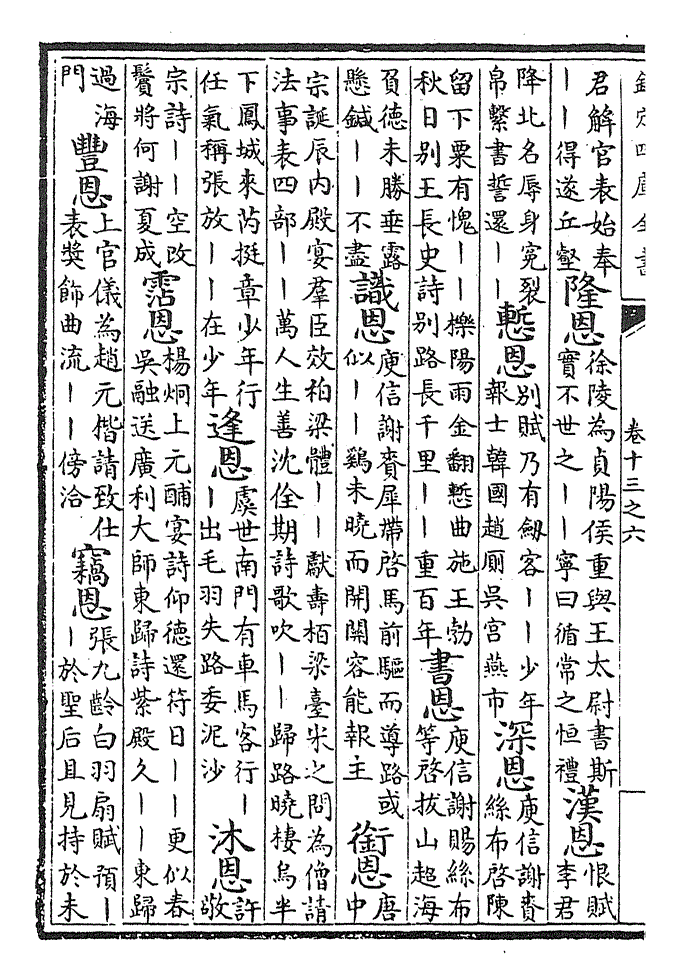 欽定四庫全書
卷十三之六
君解官表始奉
丨丨得遂丘壑
隆恩
徐陵為貞陽侯重與王太尉書斯
實不世之丨丨寧曰循常之恒禮
漢恩
恨賦
李君
降北名辱身寃裂
帛繫書誓還丨丨
慙恩
别賦乃有劔客丨丨少年
報士韓國趙厠吳宫燕市
深恩
庾信謝賚
絲布啓陳
留下粟有愧丨丨櫟陽雨金翻慙曲施王勃
秋日别王長史詩别路長千里丨丨重百年
書恩
庾信謝賜絲布
等啓拔山超海
負德未勝垂露
懸鍼丨丨不盡
識恩
庾信謝賚犀帶啓馬前驅而導路或
似丨丨鷄未曉而開關容能報主
銜恩
唐
中
宗誕辰内殿宴羣臣效柏梁體丨丨獻壽栢梁臺米之問為僧請
法事表四部丨丨萬人生善沈佺期詩歌吹丨丨歸路曉棲烏半
下鳳城來芮挺章少年行
任氣稱張放丨丨在少年
逢恩
虞世南門有車馬客行丨
丨出毛羽失路委泥沙
沐恩
許
敬
宗詩丨丨空改
鬢將何謝夏成
霑恩
楊炯上元酺宴詩仰德還符日丨丨更似春
吳融送廣利大師東歸詩紫殿久丨丨東歸
過海
門
豐恩
上官儀為趙元楷請致仕
表奬飾曲流丨丨傍洽
竊恩
張九齡白羽扇賦預丨
丨於聖后且見持於未